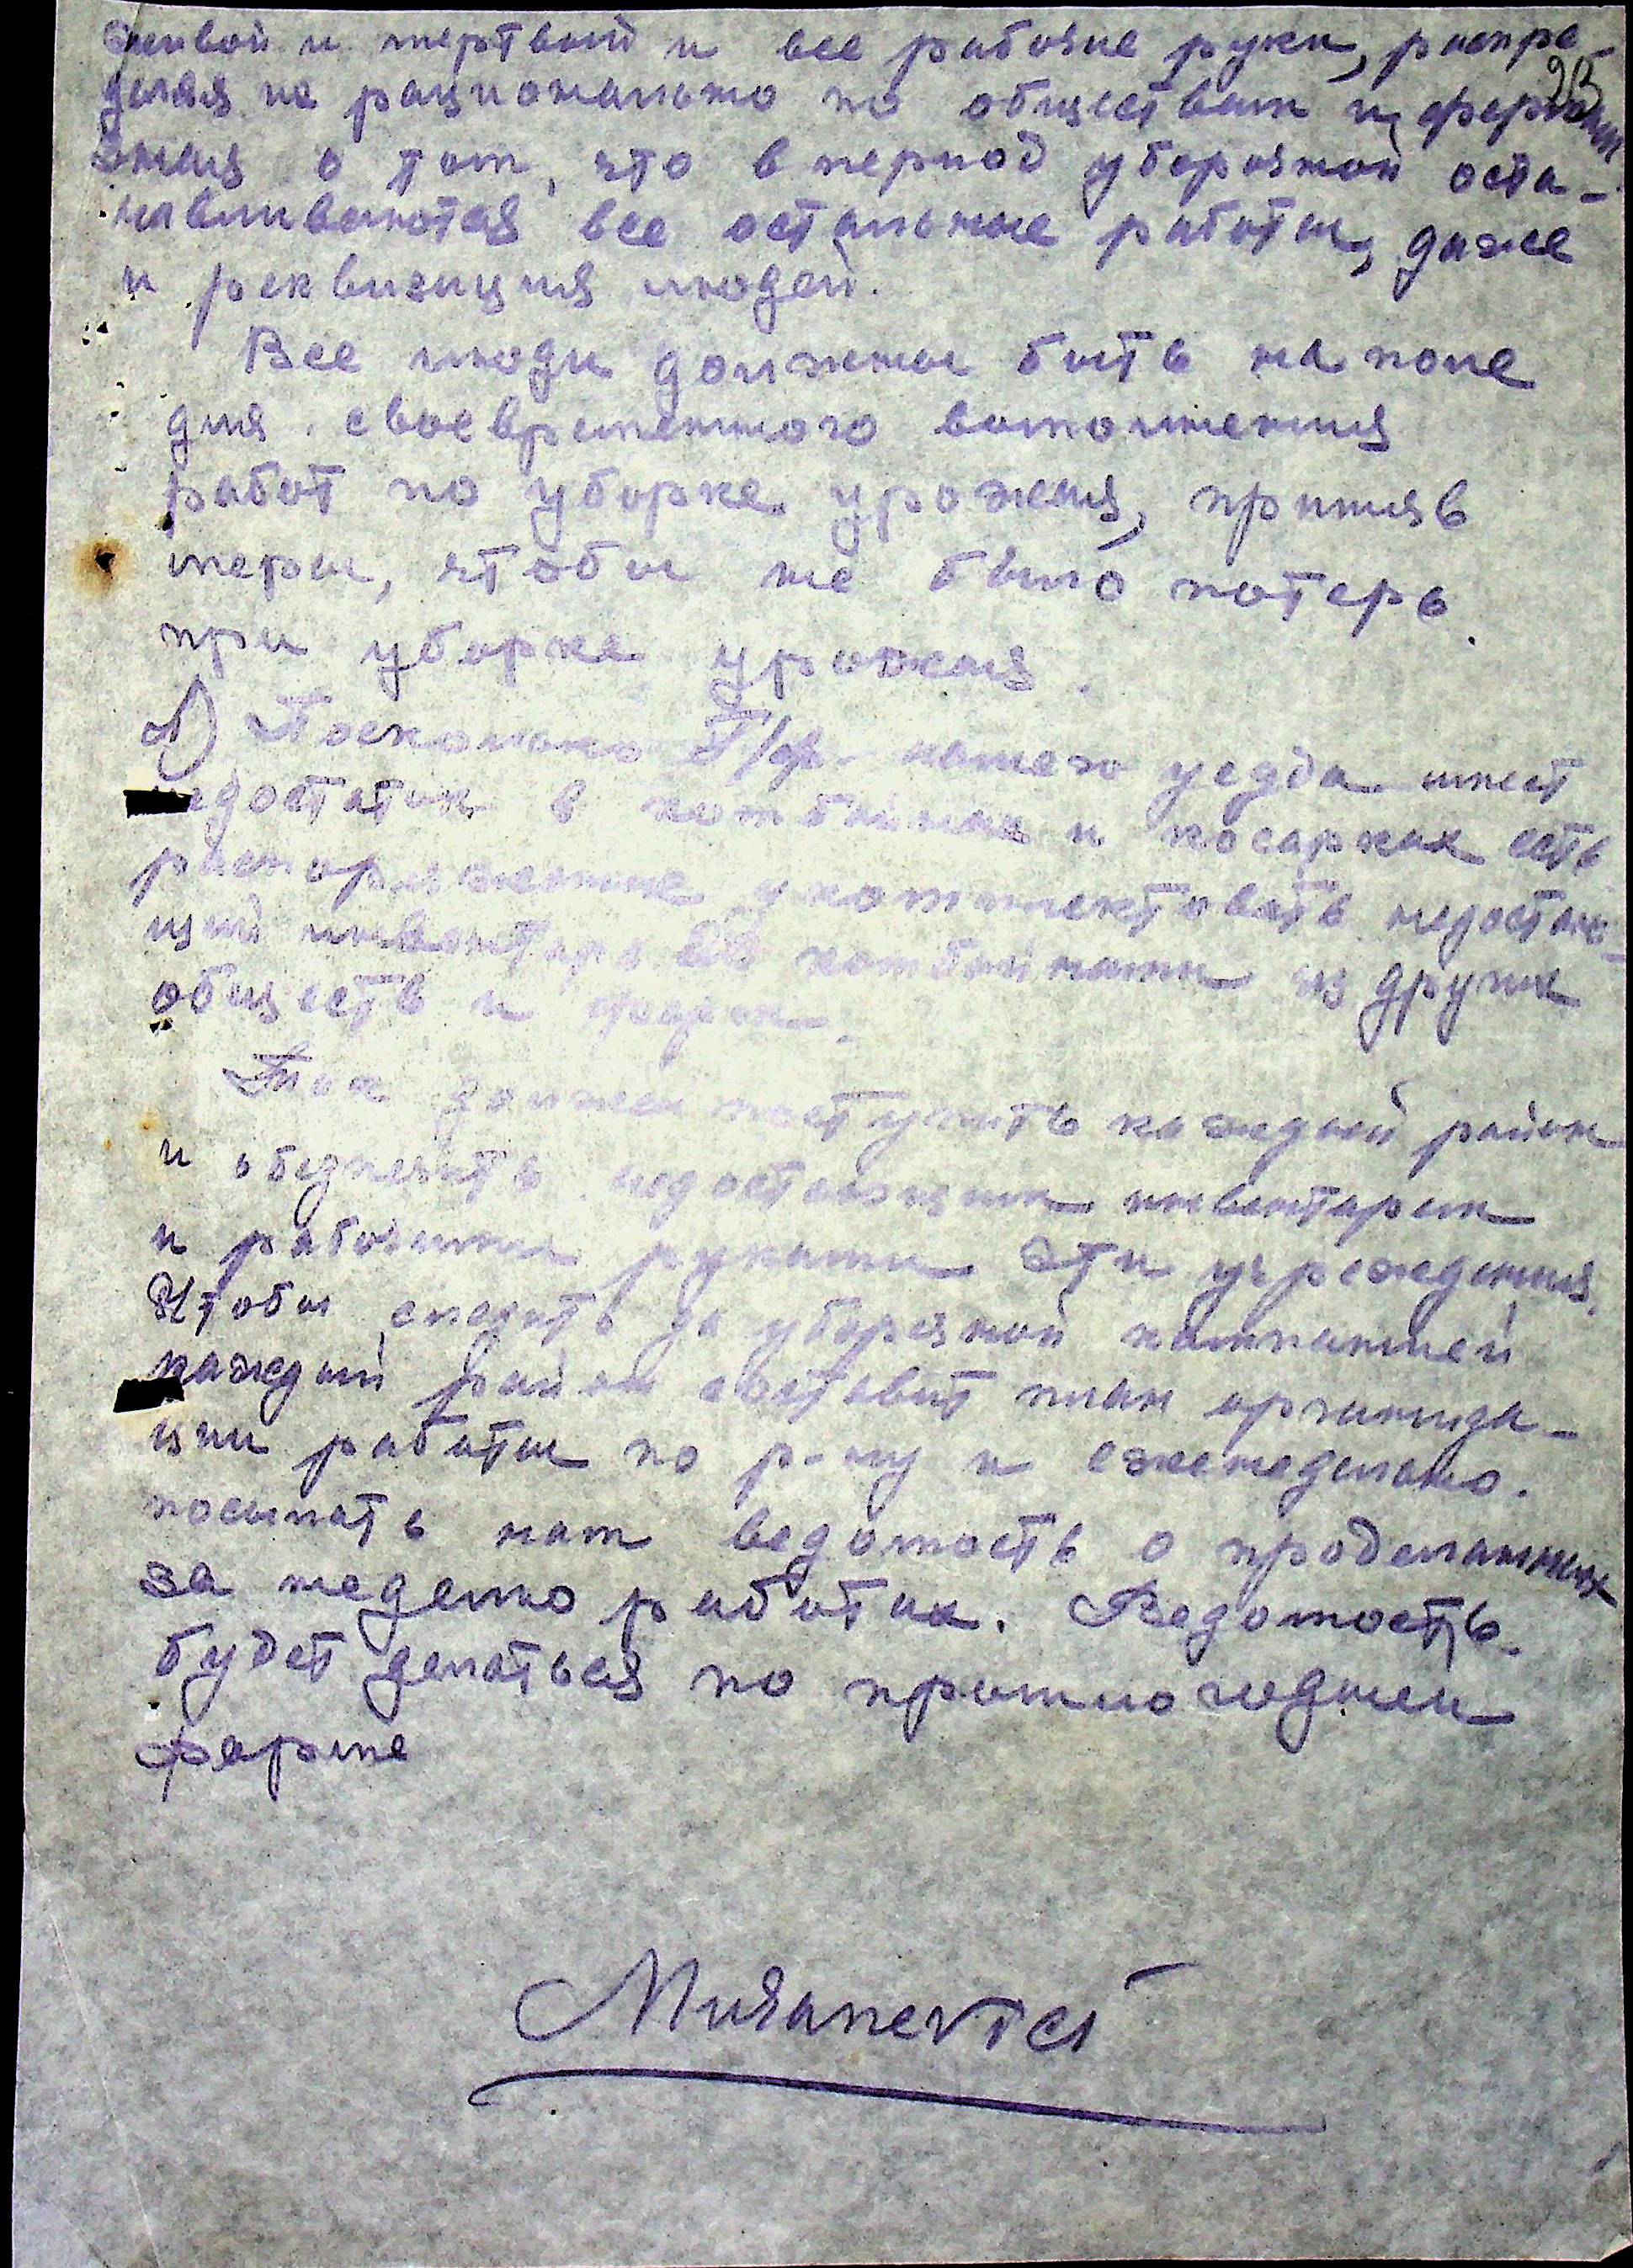 живой и мертвый и все рабочие руки, распре-
93
деляя их рационально по обществам и фермам
зная о том, что в период уборочной оста-
навливаются все остальные работы, даже
и реквизиция людей.
Все люди должны быть на поле
для своевременного выполнения
работ по уборке урожая, приняв
меры, чтобы не было потерь
при уборке урожая.
Поскольку нашего уезда имеет
недостаток в комбайнах и косарках есть
распоряжение укомплектовать недостаю-
щий инвентарь комбайнами из других
обществ и ферм.
Так должен поступить каждый район
и обеспечить недостающим инвентарем
и рабочими руками эти учреждения.
Чтобы следить за уборочной кампанией
каждый район составит план организа-
ции работы по р-ну и еженедельно.
посылать нам ведомость о проделанных
за неделю работах. Ведомость
будет делаться по прошлогодней
форме